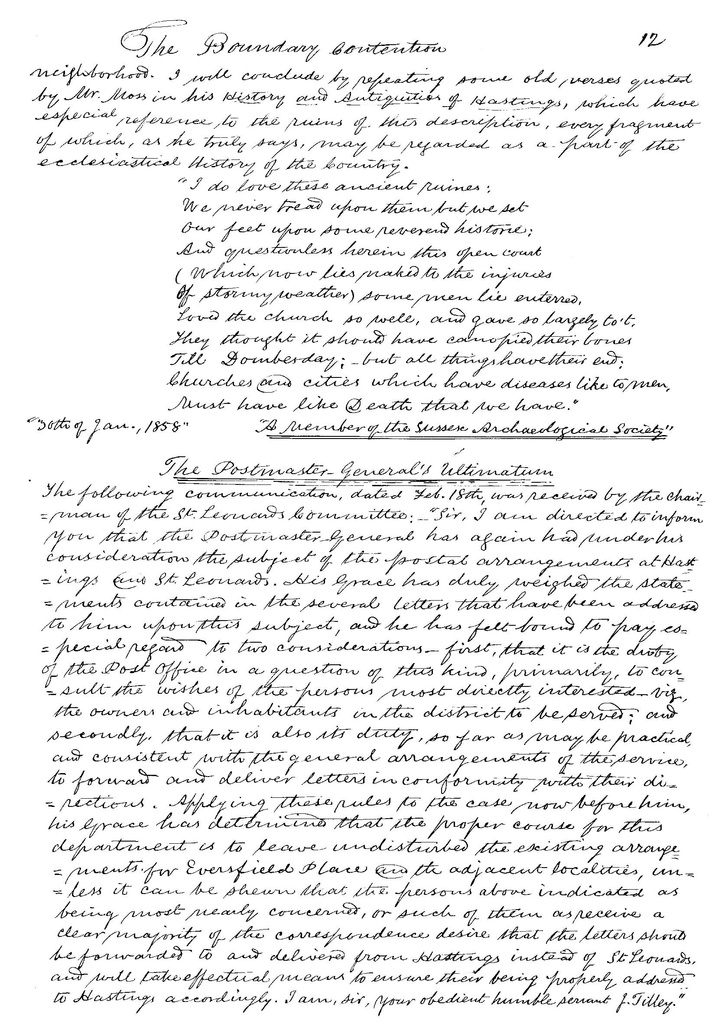 The Boundary Contention 12
neighborhood. I will conclude by repeating some old verses quoted
by Mr. Moss in his History and Antiquities of Hastings, which have
especial reference to the ruins of this description, every fragment
of which, as he truly says, may be regarded as a part of the
ecclesiastical History of the Country.
"I do love these ancient ruines:
We never tread upon them but we set
Our feet upon some reverend historie;
And questionless herein this open court
(Which now lies naked to the injuries
Of stormy weather) some men lie enterred,
Loved the church so well, and gave so largely to't,
They thought it should have canopied their bones
Till Dombesday; - but all things have their end;
Churches and cities which have diseases like to men,
Must have like Death that we have."
"30th of Jan., 1858" "A Member of the Sussex Archaeological Society"
The Postmaster-General's Ultimatum
The following communication, dated Feb. 18th, was received by the chair-
=man of the St. Leonards Committee: - "Sir, I am directed to inform
you that the Postmaster General has again had under his
consideration the subject of the postal arrangements at Hast-
=ings and St. Leonards. His Grace has duly weighed the state-
=ments contained in the several letters that have been addressed
to him upon this subject, and he has felt bound to pay es=
=pecial regard to two considerations - first, that it is the duty
of the Post Office in a question of this kind, primarily, to con=
=sult the wishes of the persons most directly interested - viz,
the owners and inhabitants in the district to be served; and
secondly, that it is also its duty, so far as may be practical,
and consistent with the general arrangements of the service,
to forward and deliver letters in conformity with their di=
=rections. Applying these rules to the case now before him,
his Grace has determined that the proper course for this
department is to leave undisturbed the existing arrange=
=ments for Eversfield Place and the adjacent localities, un=
=less it can be shewn that the persons above indicated as
being most nearly concerned, or such of them as receive a
clear majority of the correspondence desire that the letters should
be forwarded to and delivered from Hastings instead of St Leonards,
and will take effectual means to ensure their being properly addressed
to Hastings accordingly. I am, sir, your obedient humble servant J. Tilley."